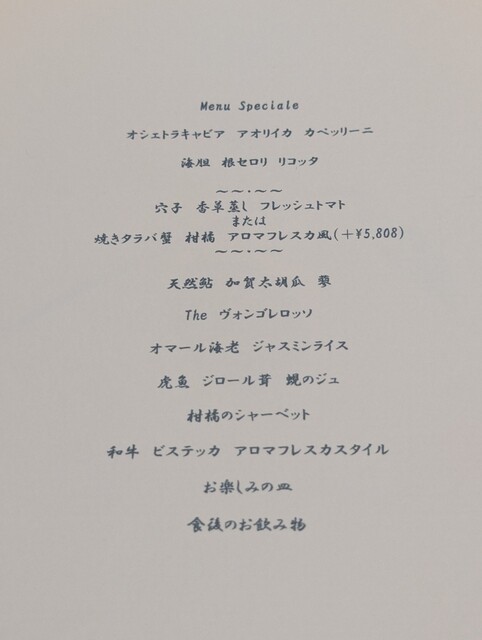 Menu Speciale
オシェトラキャビア アオリイカ カペッリーニ
海胆 根セロリ リコッタ
～～・～～
穴子 香草蒸し フレッシュトマト
または
焼きタラバ蟹 柑橘 アロマフレスカ風(＋¥5,808)
～～・～～
天然鮎 加賀太胡瓜 蓼
The ヴォンゴレロッソ
オマール海老 ジャスミンライス
虎魚 ジロール茸 蜆のジュ
柑橘のシャーベット
和牛 ビステッカ アロマフレスカスタイル
お楽しみの皿
食後のお飲み物